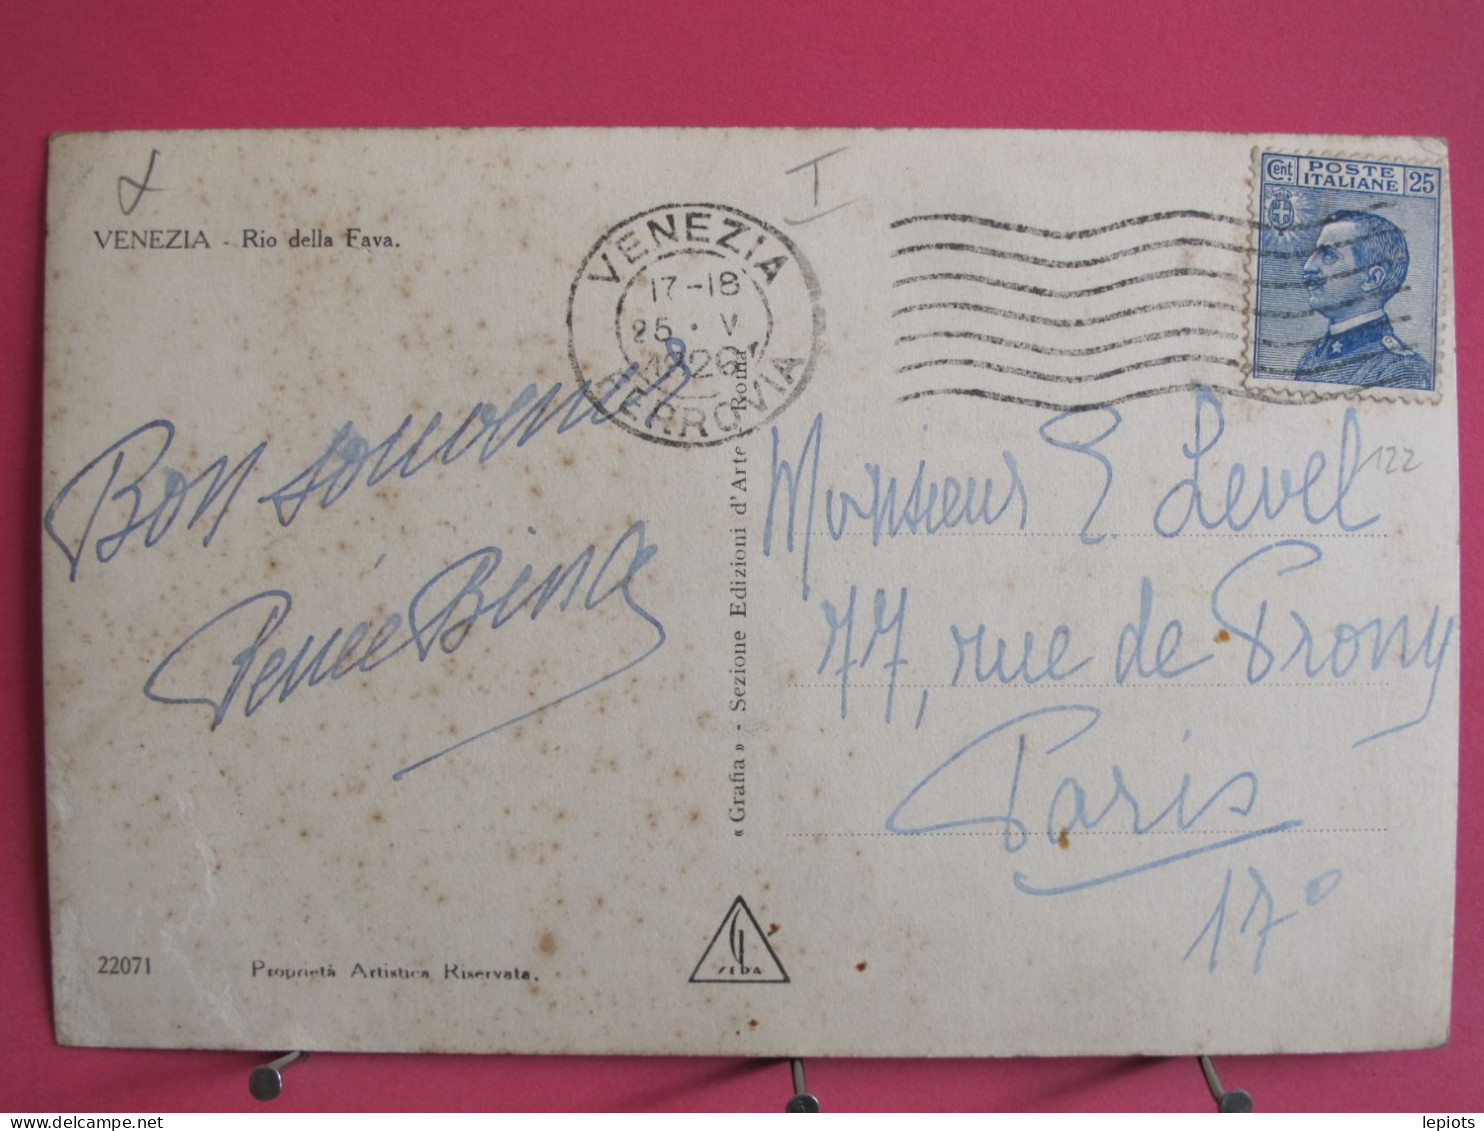 VENEZIA - Rio della Fava.
I
VENEZIA
17-18
25 · V
1926
FERROVIA
Cent. POSTE ITALIANE 25
Bon souvenir
Renée Bina
« Grafia » - Sezione Edizioni d'Arte - Roma
Monsieur E. Level
122
77, rue de Prony
Paris
17º
22071
Proprietà Artistica Riservata.
lepiots